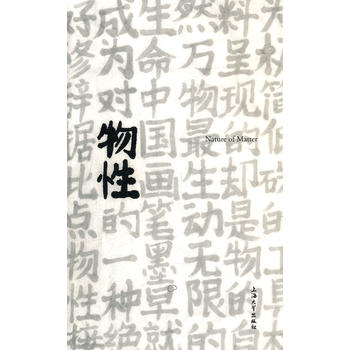 物性
Nature of Matter
料呈现的却是物的
然万物最生动无限的
生命中国画笔墨草就
成为对
的一种绝
好修辞据比点物性接
上海大学出版社